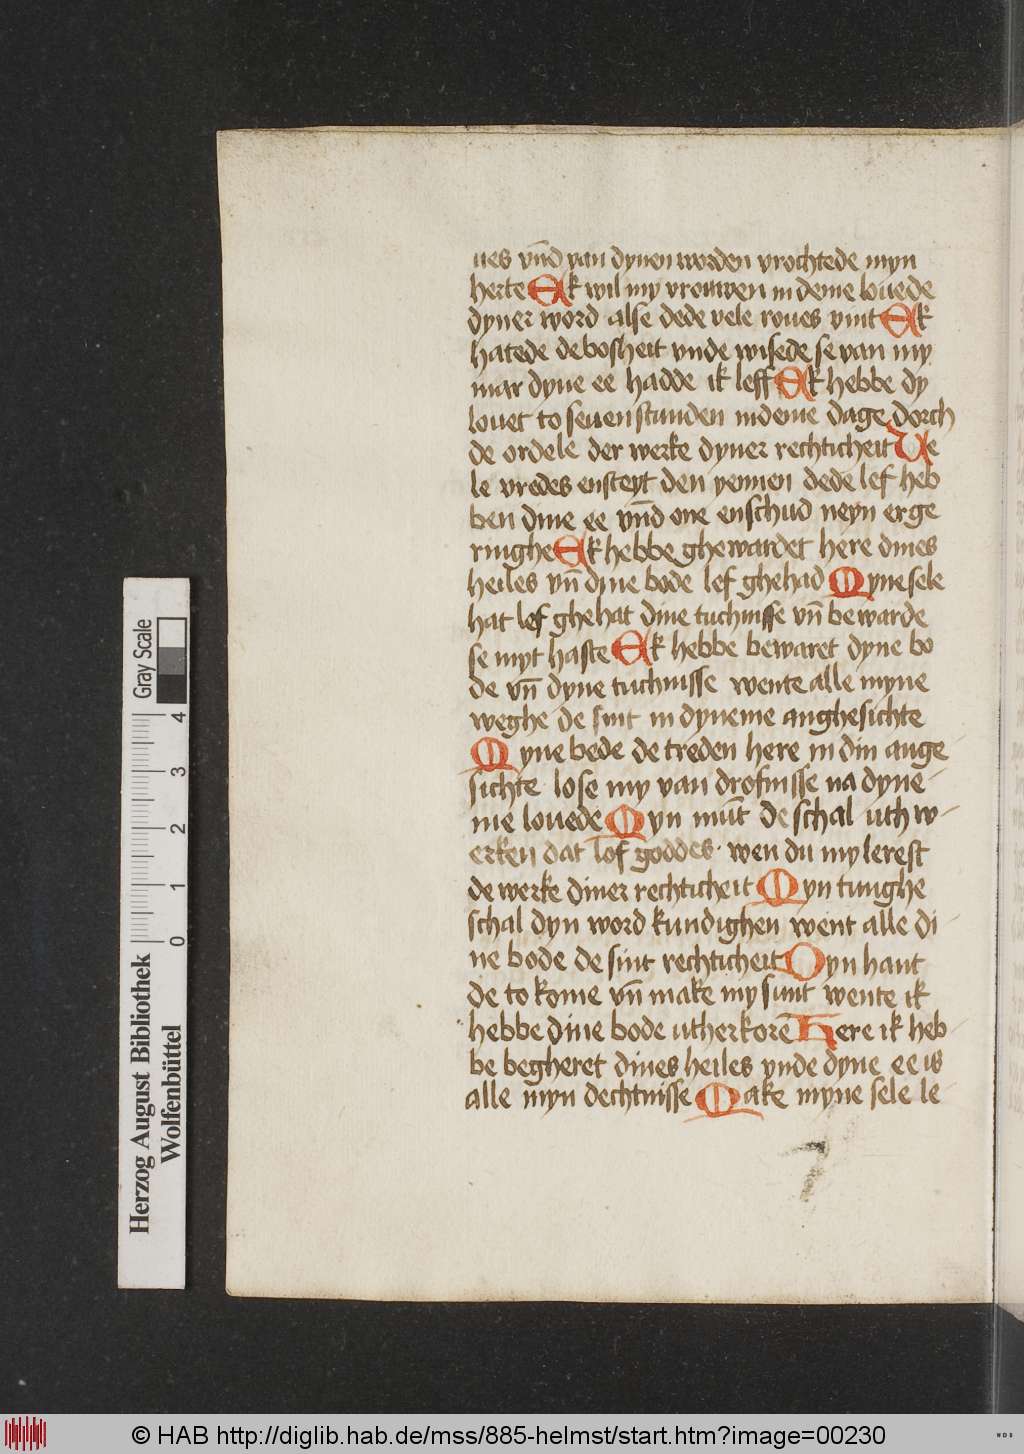 ues vn̄d van dynen worden vrochtede myn
herte Ek wil my vrouwen in deme louede
dyner word alse dede vele roues vint Ek
hatede de bosheit vnde wisede se van my
mar dyne ee hadde ik leff Ek hebbe dy
louet to seuen stunden in deme dage dorch
de ordele der werke dyner rechticheit Ve
le vredes ensteyt den yennen dede lef heb
ben dine ee vn̄d one enschud neyn erge
ringhe Ek hebbe ghewardet here dines
heiles vn̄ dine bode lef ghehad Myne sele
hat lef ghehat dine tuchnisse vn̄ bewarde
se myt haste Ek hebbe bewaret dyne bo
de vn̄ dyne tuchnisse wente alle myne
weghe de sint in dyneme anghesichte
Myne bede de treden here in din ange-
sichte lose my van drofnisse na dyne-
me louede Myn mūt de schal uth w-
erken dat lof goddes · wen du my lerest
de werke diner rechticheit Myn tunghe
schal dyn word kundighen went alle di-
ne bode de sint rechticheit Dyn hant
de to kome vn̄ make my sunt wente ik
hebbe dine bode utherkorē Here ik heb-
be begheret dines heiles vnde dyne ee is
alle myn dechtnisse Make myne sele le-
Herzog August Bibliothek
Wolfenbüttel
0 1 2 3 4
Gray Scale
© HAB http://diglib.hab.de/mss/885-helmst/start.htm?image=00230
WDB